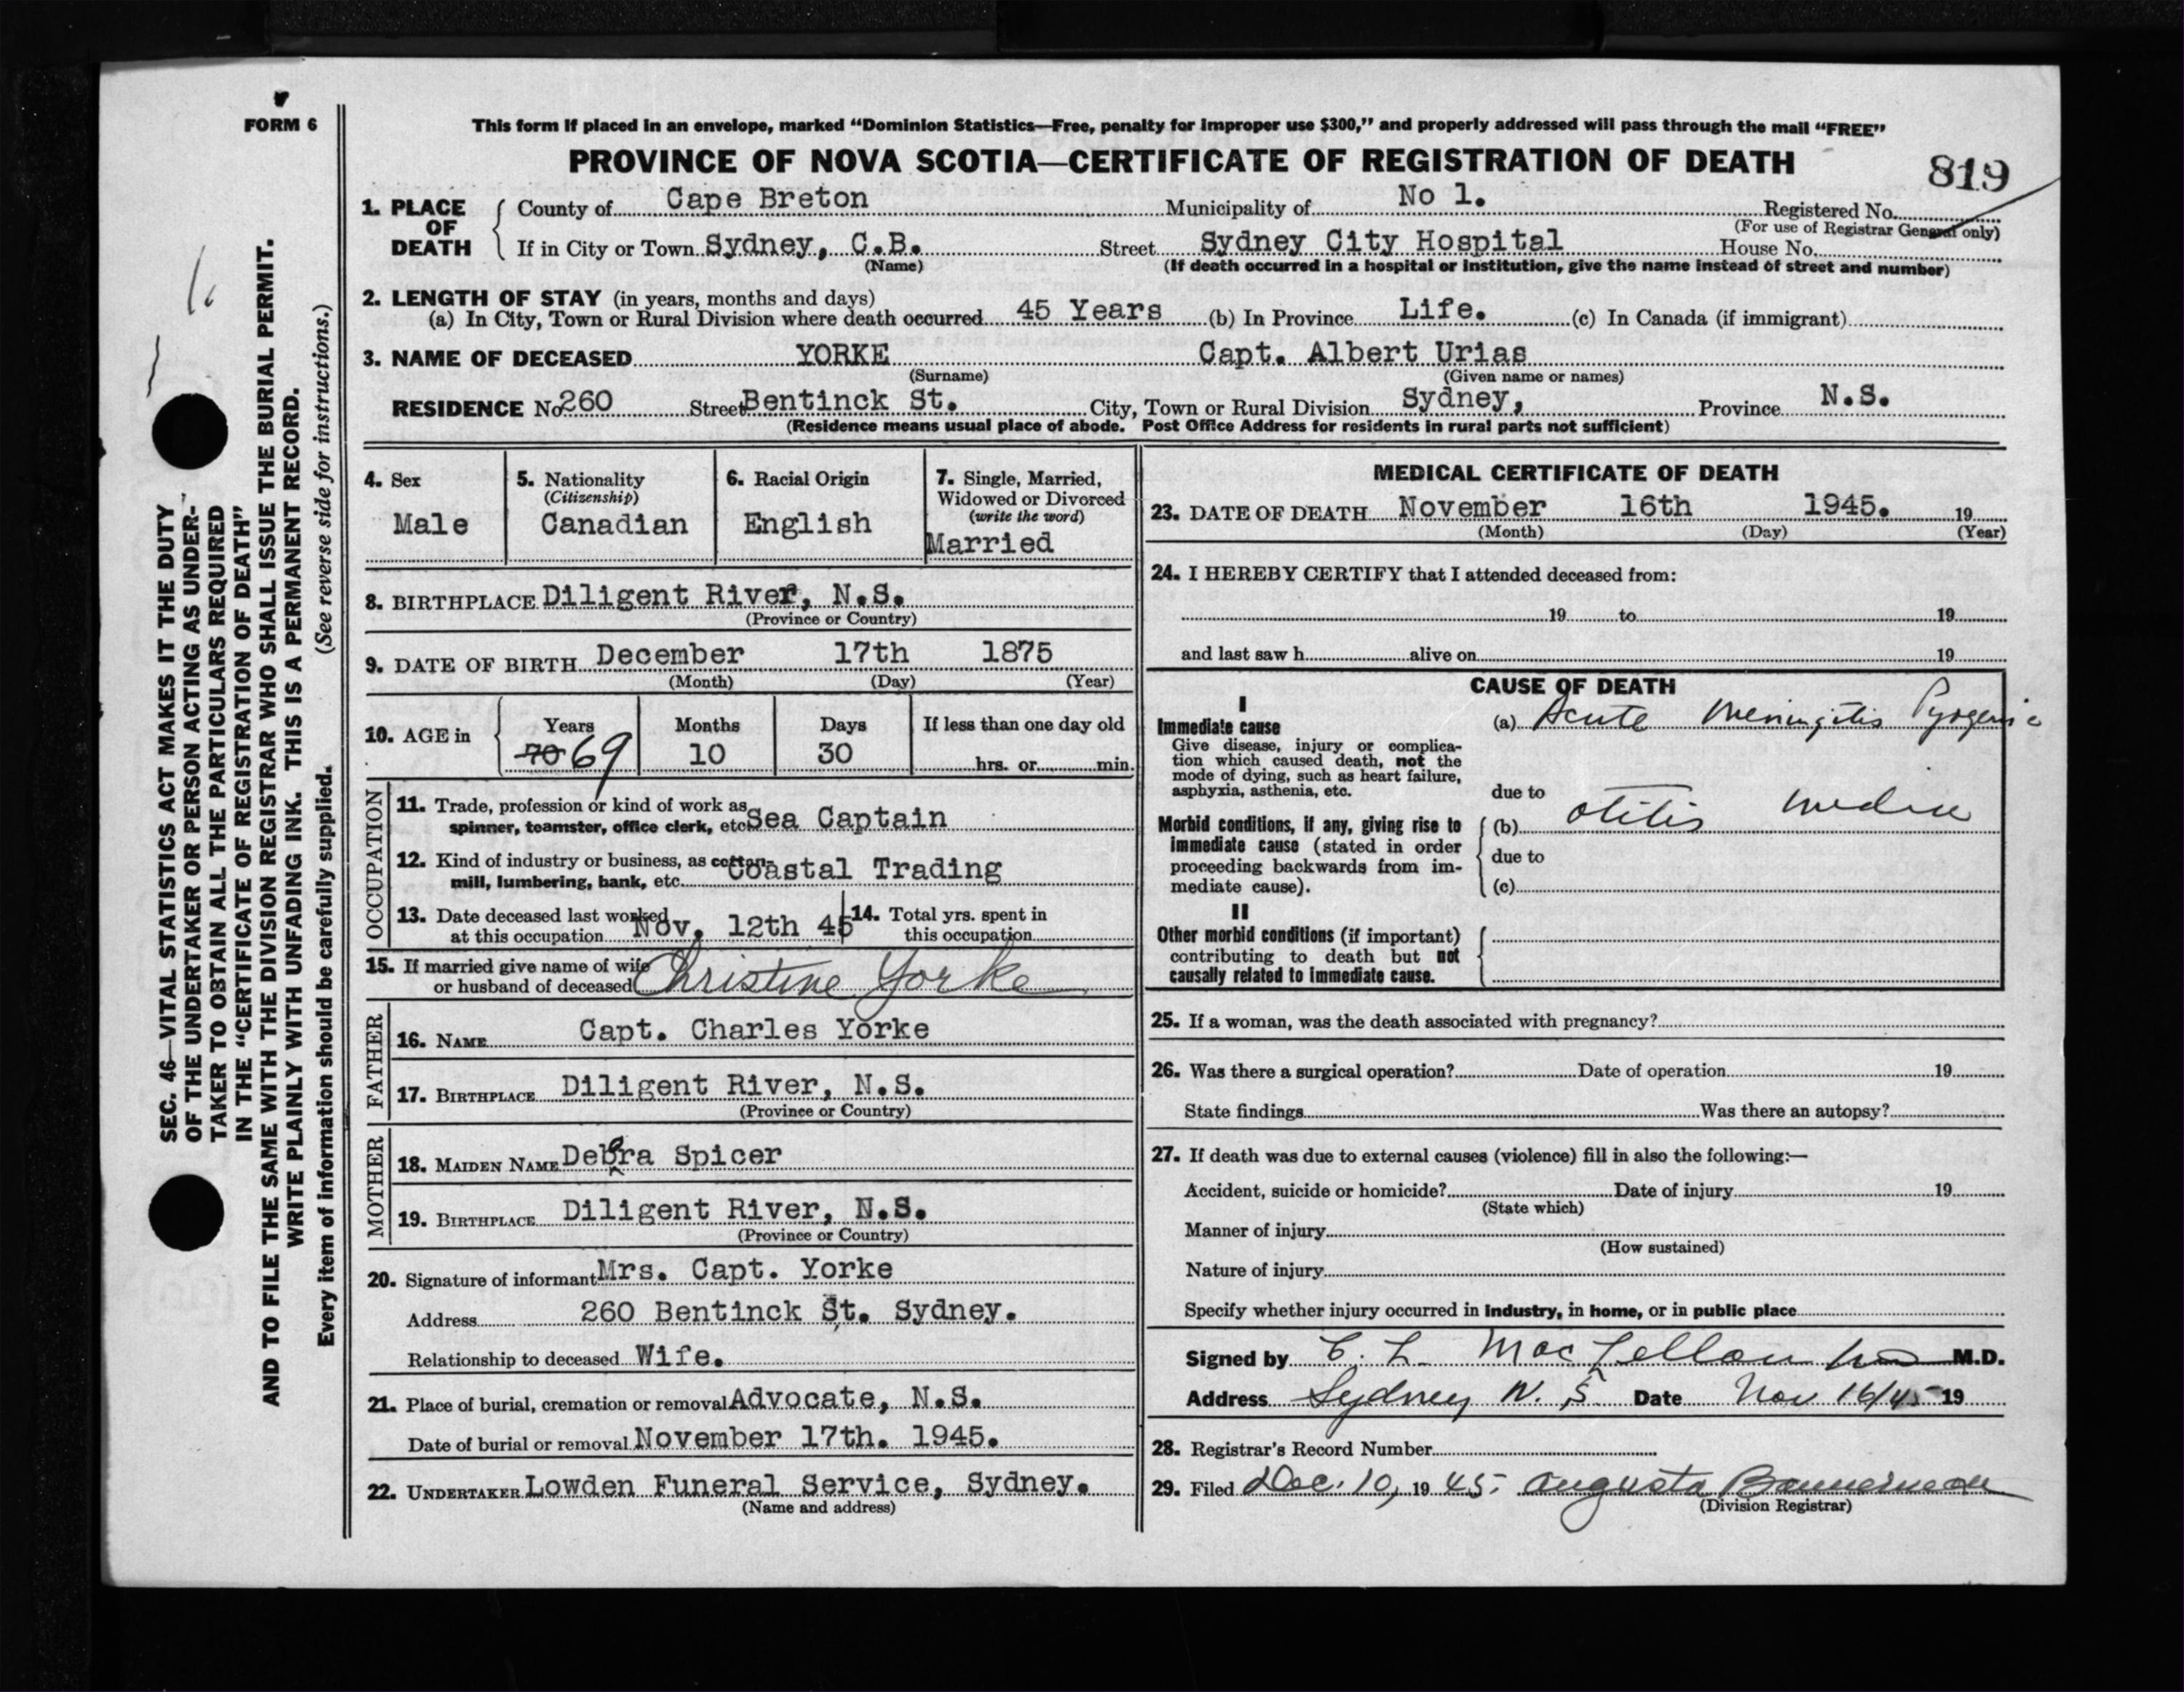 FORM 6
This form if placed in an envelope, marked “Dominion Statistics—Free, penalty for improper use $300,” and properly addressed will pass through the mail “FREE”
PROVINCE OF NOVA SCOTIA—CERTIFICATE OF REGISTRATION OF DEATH
819
1. PLACE OF DEATH
County of Cape Breton Municipality of No 1. Registered No.
(For use of Registrar General only)
If in City or Town Sydney, C.B. Street Sydney City Hospital House No.
(Name) (If death occurred in a hospital or institution, give the name instead of street and number)
2. LENGTH OF STAY (in years, months and days)
(a) In City, Town or Rural Division where death occurred 45 Years (b) In Province Life. (c) In Canada (if immigrant)
3. NAME OF DECEASED YORKE Capt. Albert Urias
(Surname) (Given name or names)
RESIDENCE No 260 Street Bentinck St. City, Town or Rural Division Sydney, Province N.S.
(Residence means usual place of abode. Post Office Address for residents in rural parts not sufficient)
4. Sex
Male
5. Nationality
(Citizenship)
Canadian
6. Racial Origin
English
7. Single, Married,
Widowed or Divorced
(write the word)
Married
8. BIRTHPLACE Diligent River, N.S.
(Province or Country)
9. DATE OF BIRTH December 17th 1875
(Month) (Day) (Year)
10. AGE in
Years Months Days If less than one day old
70 69 10 30 hrs. or min.
OCCUPATION
11. Trade, profession or kind of work as
spinner, teamster, office clerk, etc Sea Captain
12. Kind of industry or business, as cotton-
mill, lumbering, bank, etc. Coastal Trading
13. Date deceased last worked
at this occupation Nov. 12th 45
14. Total yrs. spent in
this occupation
15. If married give name of wife
or husband of deceased Christine Yorke
FATHER
16. NAME Capt. Charles Yorke
17. BIRTHPLACE Diligent River, N.S.
(Province or Country)
MOTHER
18. MAIDEN NAME Debra Spicer
19. BIRTHPLACE Diligent River, N.S.
(Province or Country)
20. Signature of informant Mrs. Capt. Yorke
Address 260 Bentinck St. Sydney.
Relationship to deceased Wife.
21. Place of burial, cremation or removal Advocate, N.S.
Date of burial or removal November 17th. 1945.
22. UNDERTAKER Lowden Funeral Service, Sydney.
(Name and address)
MEDICAL CERTIFICATE OF DEATH
23. DATE OF DEATH November 16th 1945. 19
(Month) (Day) (Year)
24. I HEREBY CERTIFY that I attended deceased from:
19 to 19
and last saw h alive on 19
CAUSE OF DEATH
I
Immediate cause
Give disease, injury or complica-
tion which caused death, not the
mode of dying, such as heart failure,
asphyxia, asthenia, etc.
(a) Acute Meningitis Pyogenic
due to
Morbid conditions, if any, giving rise to
immediate cause (stated in order
proceeding backwards from im-
mediate cause).
(b) otitis media
due to
(c)
II
Other morbid conditions (if important)
contributing to death but not
causally related to immediate cause.
25. If a woman, was the death associated with pregnancy?
26. Was there a surgical operation? Date of operation 19
State findings Was there an autopsy?
27. If death was due to external causes (violence) fill in also the following:—
Accident, suicide or homicide? Date of injury 19
(State which)
Manner of injury
(How sustained)
Nature of injury
Specify whether injury occurred in industry, in home, or in public place
Signed by C. L. MacLellan M.D.
Address Sydney N.S. Date Nov 16/45 19
28. Registrar's Record Number
29. Filed Dec. 10, 19 45. Augusta
(Division Registrar)
SEC. 46—VITAL STATISTICS ACT MAKES IT THE DUTY
OF THE UNDERTAKER OR PERSON ACTING AS UNDER-
TAKER TO OBTAIN ALL THE PARTICULARS REQUIRED
IN THE “CERTIFICATE OF REGISTRATION OF DEATH”
AND TO FILE THE SAME WITH THE DIVISION REGISTRAR WHO SHALL ISSUE THE BURIAL PERMIT.
WRITE PLAINLY WITH UNFADING INK. THIS IS A PERMANENT RECORD.
Every item of information should be carefully supplied. (See reverse side for instructions.)